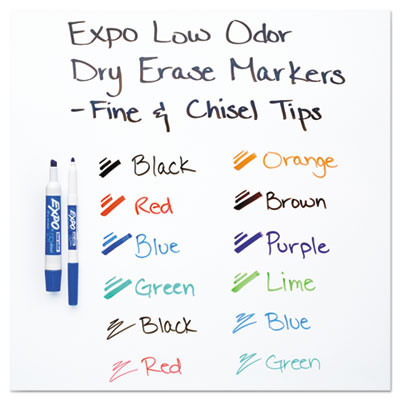 Expo Low Odor
Dry Erase Markers
-Fine & Chisel Tips
Black
Red
Blue
Green
Black
Red
Orange
Brown
Purple
Lime
Blue
Green
EXPO
EXPO